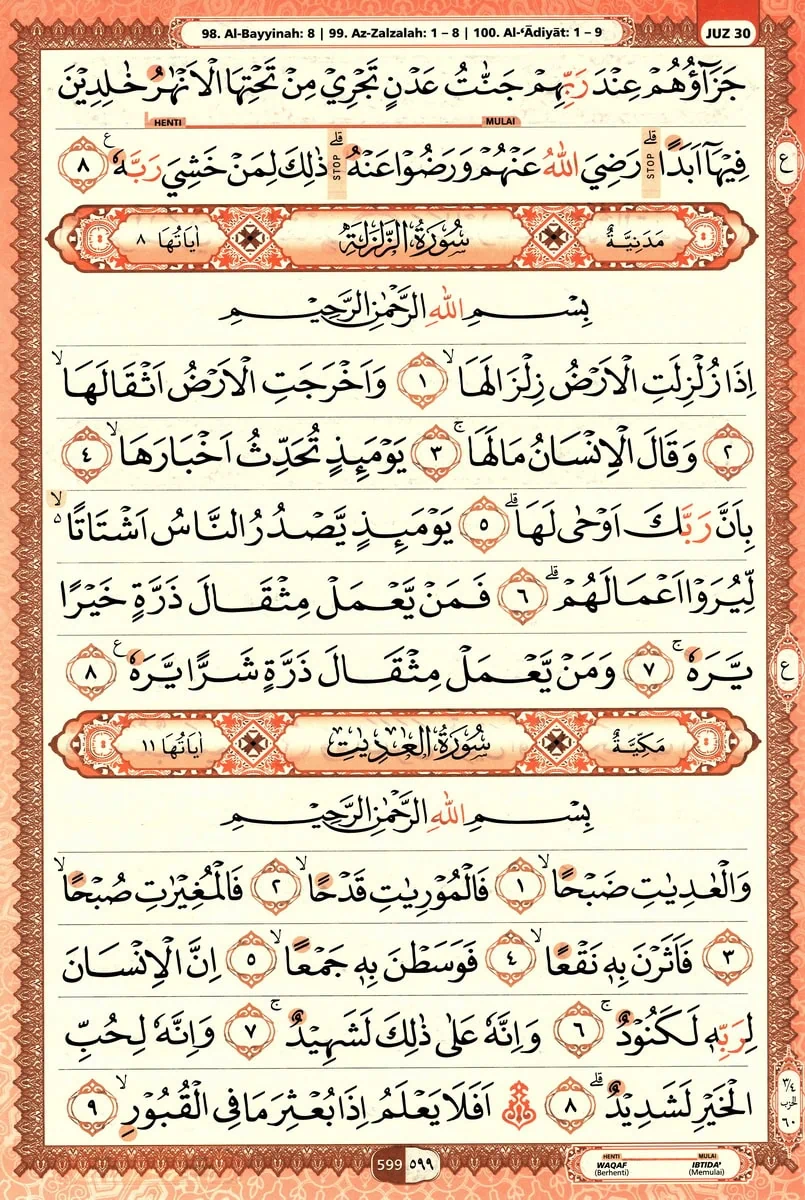 98. Al-Bayyinah: 8 | 99. Az-Zalzalah: 1 – 8 | 100. Al-‘Ādiyāt: 1 – 9
JUZ 30
جَزَاۤؤُهُمْ عِنْدَ رَبِّهِمْ جَنّٰتُ عَدْنٍ تَجْرِيْ مِنْ تَحْتِهَا الْاَنْهٰرُ خٰلِدِيْنَ
HENTI MULAI
فِيْهَآ اَبَدًاۗ STOP رَضِيَ اللّٰهُ عَنْهُمْ وَرَضُوْا عَنْهُۗ STOP ذٰلِكَ لِمَنْ خَشِيَ رَبَّهٗ ࣖ ٨
ع
مَدَنِيَّةٌ سُوْرَةُ الزَّلْزَلَةِ اٰيَاتُهَا ٨
بِسْمِ اللّٰهِ الرَّحْمٰنِ الرَّحِيْمِ
اِذَا زُلْزِلَتِ الْاَرْضُ زِلْزَالَهَاۙ ١ وَاَخْرَجَتِ الْاَرْضُ اَثْقَالَهَاۙ
٢ وَقَالَ الْاِنْسَانُ مَا لَهَاۚ ٣ يَوْمَىِٕذٍ تُحَدِّثُ اَخْبَارَهَاۙ ٤
بِاَنَّ رَبَّكَ اَوْحٰى لَهَاۗ ٥ يَوْمَىِٕذٍ يَّصْدُرُ النَّاسُ اَشْتَاتًا ەۙ
لِّيُرَوْا اَعْمَالَهُمْۗ ٦ فَمَنْ يَّعْمَلْ مِثْقَالَ ذَرَّةٍ خَيْرًا
يَّرَهٗۚ ٧ وَمَنْ يَّعْمَلْ مِثْقَالَ ذَرَّةٍ شَرًّا يَّرَهٗ ࣖ ٨
ع
مَكِّيَّةٌ سُوْرَةُ الْعٰدِيٰتِ اٰيَاتُهَا ١١
بِسْمِ اللّٰهِ الرَّحْمٰنِ الرَّحِيْمِ
وَالْعٰدِيٰتِ ضَبْحًاۙ ١ فَالْمُوْرِيٰتِ قَدْحًاۙ ٢ فَالْمُغِيْرٰتِ صُبْحًاۙ
٣ فَاَثَرْنَ بِهٖ نَقْعًاۙ ٤ فَوَسَطْنَ بِهٖ جَمْعًاۙ ٥ اِنَّ الْاِنْسَانَ
لِرَبِّهٖ لَكَنُوْدٌۚ ٦ وَاِنَّهٗ عَلٰى ذٰلِكَ لَشَهِيْدٌۚ ٧ وَاِنَّهٗ لِحُبِّ
الْخَيْرِ لَشَدِيْدٌۗ ٨ ۞ اَفَلَا يَعْلَمُ اِذَا بُعْثِرَ مَا فِى الْقُبُوْرِۙ ٩
٣/٤
الحزب
٦٠
599 ٥٩٩
HENTI MULAI
WAQAF IBTIDA’
(Berhenti) (Memulai)